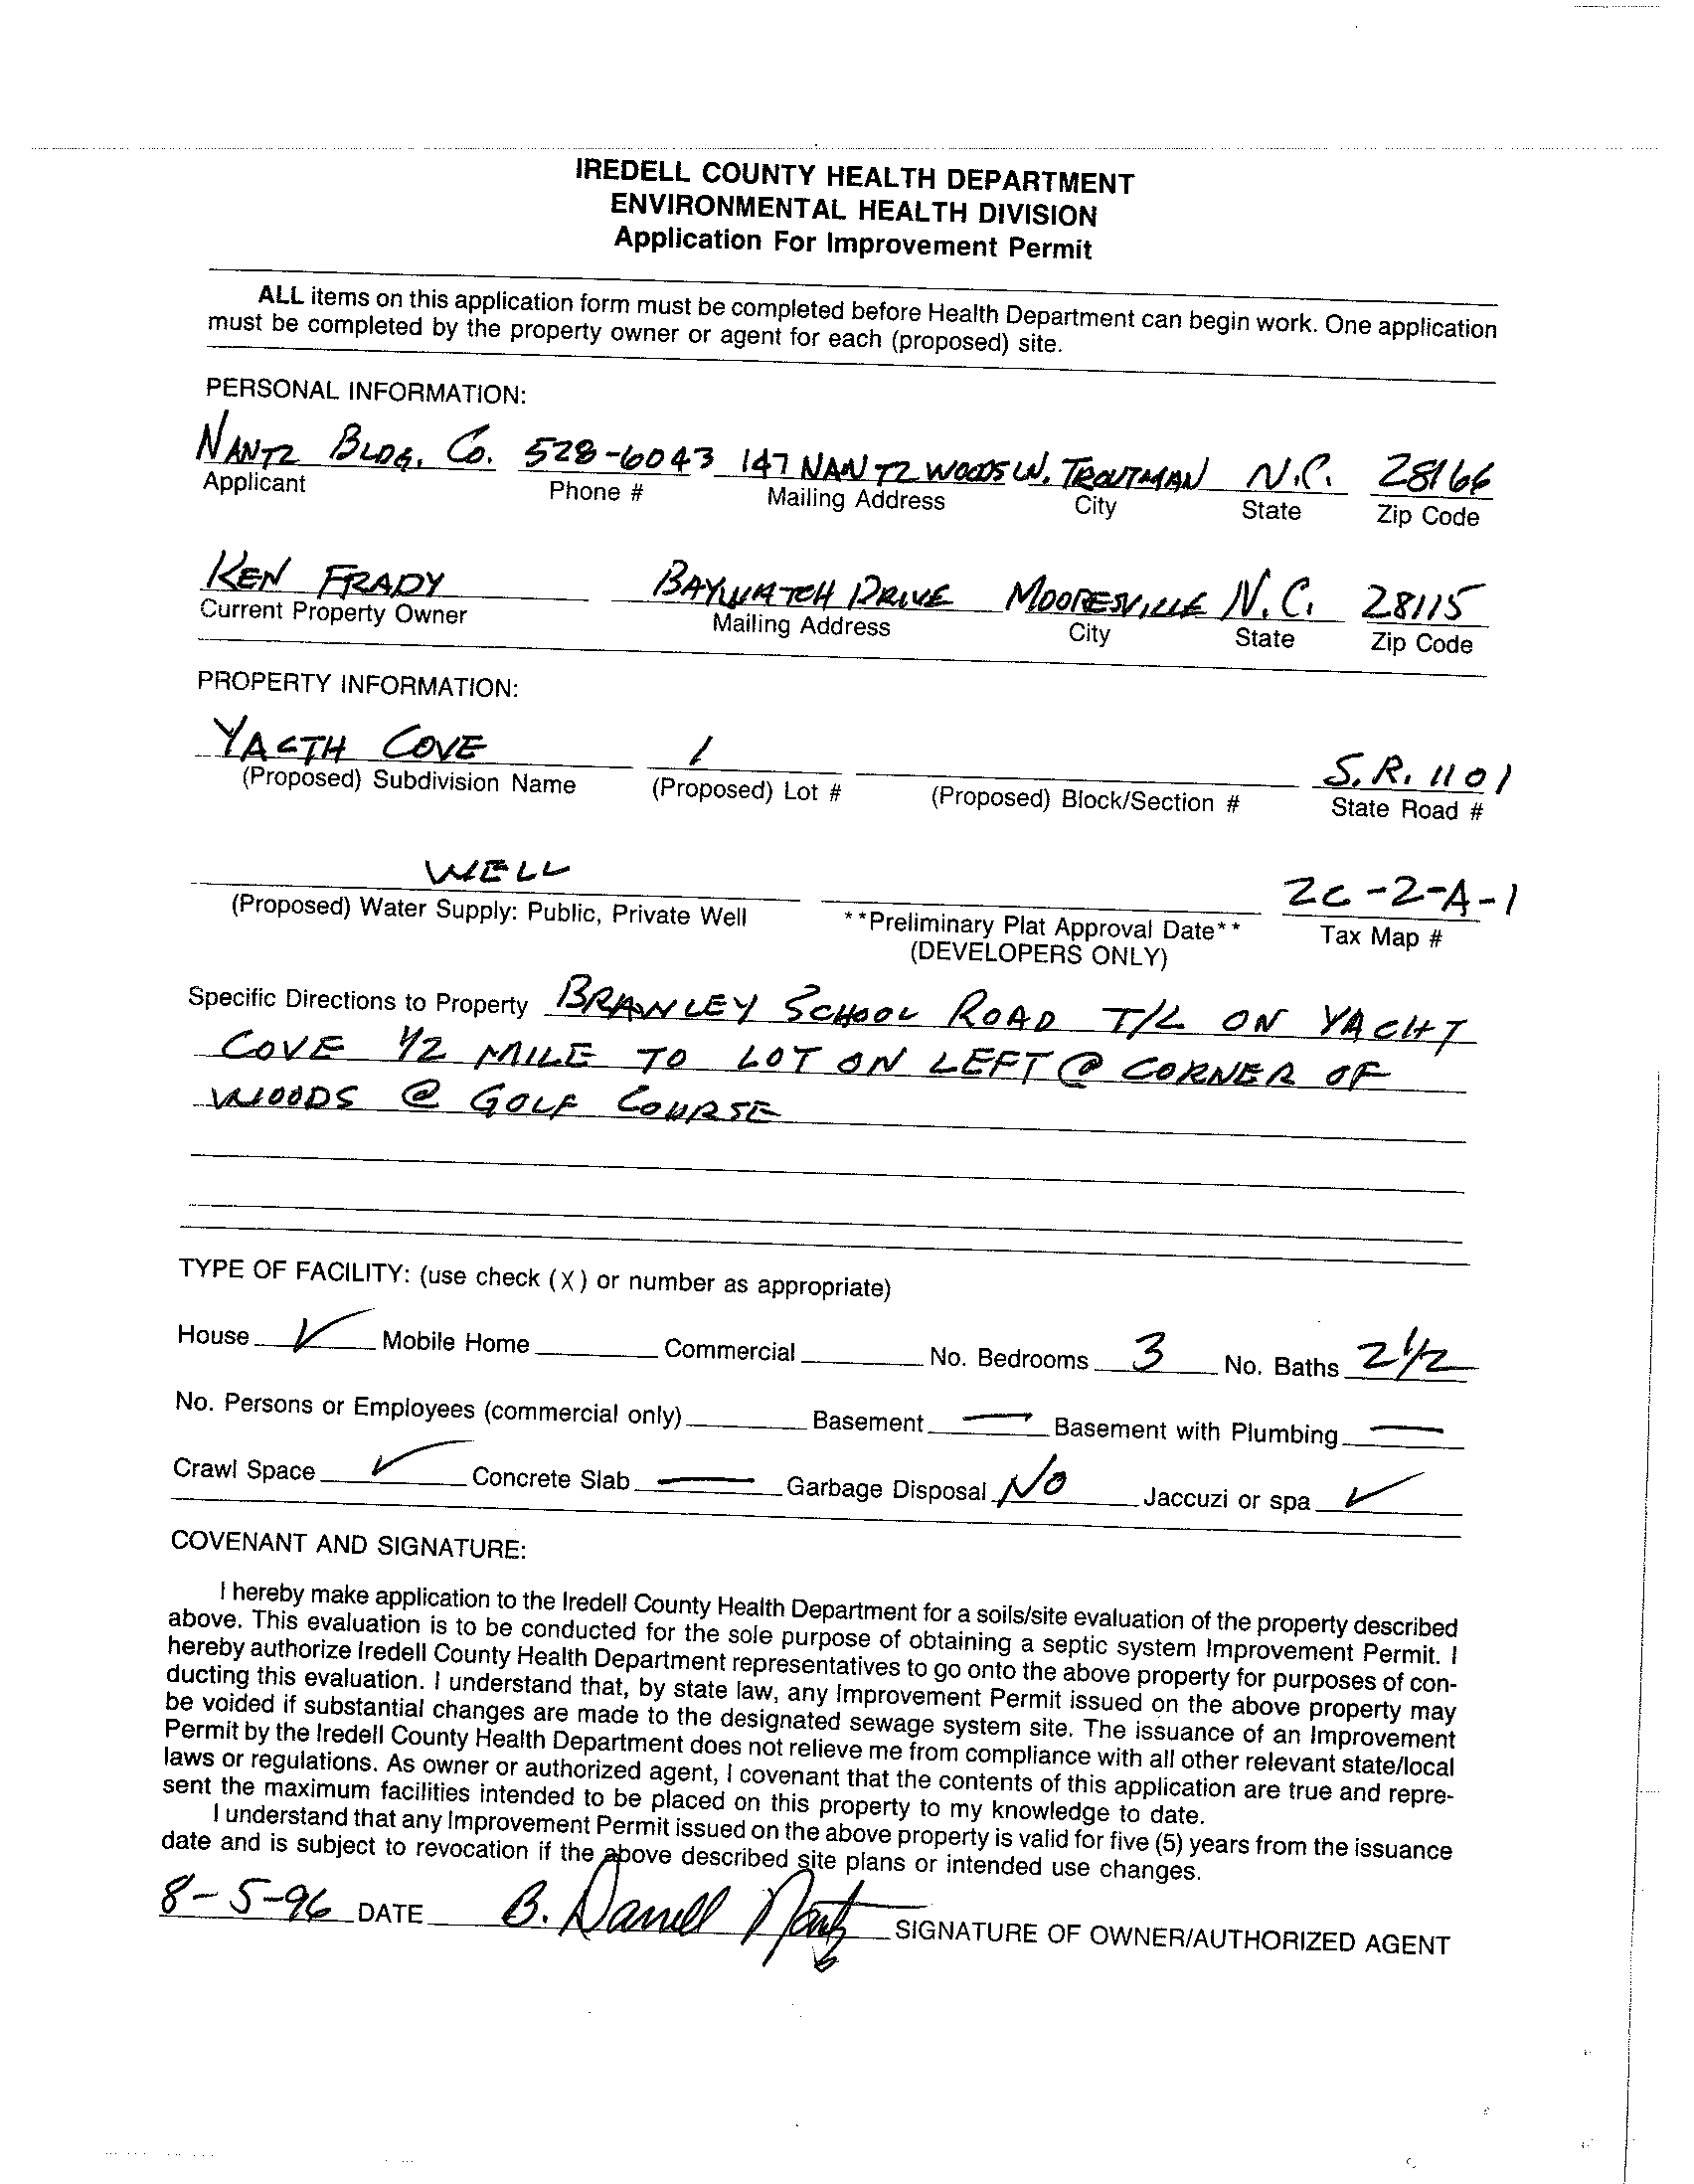 IREDELL COUNTY HEALTH DEPARTMENT
ENVIRONMENTAL HEALTH DIVISION
Application For Improvement Permit
ALL items on this application form must be completed before Health Department can begin work. One application
must be completed by the property owner or agent for each (proposed) site.
PERSONAL INFORMATION:
NANTZ BLDG. CO. 528-6043 147 NANTZ WOODS LN. TROUTMAN N.C. 28166
Applicant Phone # Mailing Address City State Zip Code
KEN FRADY BAYWATCH DRIVE MOORESVILLE N.C. 28115
Current Property Owner Mailing Address City State Zip Code
PROPERTY INFORMATION:
YACTH COVE 1 S.R. 1101
(Proposed) Subdivision Name (Proposed) Lot # (Proposed) Block/Section # State Road #
WELL 2C-2-A-1
(Proposed) Water Supply: Public, Private Well **Preliminary Plat Approval Date** Tax Map #
(DEVELOPERS ONLY)
Specific Directions to Property BRAWLEY SCHOOL ROAD T/L ON YACHT
COVE 1/2 MILE TO LOT ON LEFT @ CORNER OF
WOODS @ GOLF COURSE
TYPE OF FACILITY: (use check (X) or number as appropriate)
House ✓ Mobile Home Commercial No. Bedrooms 3 No. Baths 2 1/2
No. Persons or Employees (commercial only) Basement — Basement with Plumbing —
Crawl Space ✓ Concrete Slab — Garbage Disposal NO Jaccuzi or spa ✓
COVENANT AND SIGNATURE:
I hereby make application to the Iredell County Health Department for a soils/site evaluation of the property described
above. This evaluation is to be conducted for the sole purpose of obtaining a septic system Improvement Permit. I
hereby authorize Iredell County Health Department representatives to go onto the above property for purposes of con-
ducting this evaluation. I understand that, by state law, any Improvement Permit issued on the above property may
be voided if substantial changes are made to the designated sewage system site. The issuance of an Improvement
Permit by the Iredell County Health Department does not relieve me from compliance with all other relevant state/local
laws or regulations. As owner or authorized agent, I covenant that the contents of this application are true and repre-
sent the maximum facilities intended to be placed on this property to my knowledge to date.
I understand that any Improvement Permit issued on the above property is valid for five (5) years from the issuance
date and is subject to revocation if the above described site plans or intended use changes.
8-5-96 DATE B. Darrell Nantz SIGNATURE OF OWNER/AUTHORIZED AGENT